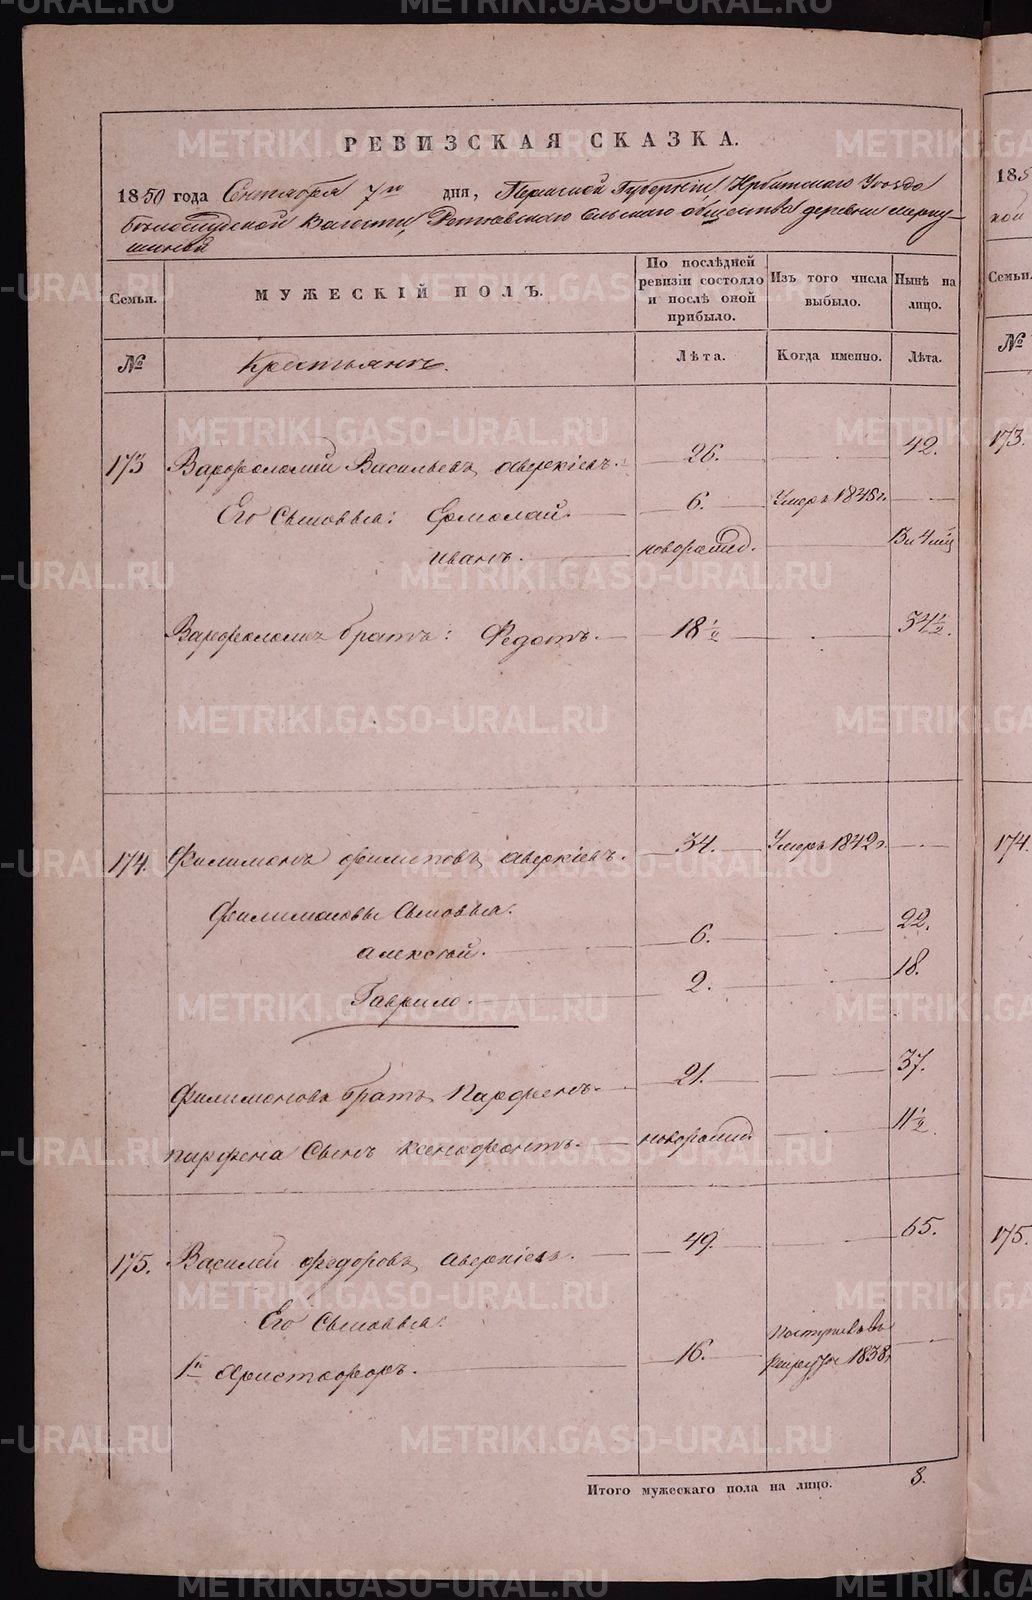 METRIKI.GASO-URAL.RU
РЕВИЗСКАЯ СКАЗКА.
1850 года Сентября 7го дня, Пермской Губернiи Ирбитскаго Уезда
Белослудской Волости, Ретневскаго Сельскаго общества деревни Мерку-
шиной
Семьи. МУЖЕСКІЙ ПОЛЪ. По послѣдней ревизіи состояло и послѣ оной прибыло. Изъ того числа выбыло. Нынѣ на лицо.
№ Крестьянъ. Лѣта. Когда именно. Лѣта.
173 Варфоломей Васильевъ Аверкіевъ. 26. 42.
Его Сыновья: Ермолай. 6. Умеръ 1848г.
Иванъ. новорожд.
Варфоломея братъ: Федотъ. 18 1/2 34 1/2.
174. Филимонъ Филиповъ Аверкіевъ. 34. Умеръ 1842г.
Филимоновы Сыновья:
Алексей. 6. 22.
Гаврило. 2. 18.
Филимонова братъ Парфенъ. 21. 37.
Парфена Сынъ Ксенофонтъ. новорожд. 11 1/2
175. Василей Федоровъ Аверкіевъ. 49. 65.
Его Сыновья:
1й Христофоръ. 16. Поступилъ въ рекруты 1838г
Итого мужескаго пола на лицо. 8.
185
кой
Семьи.
№
173.
174.
175.